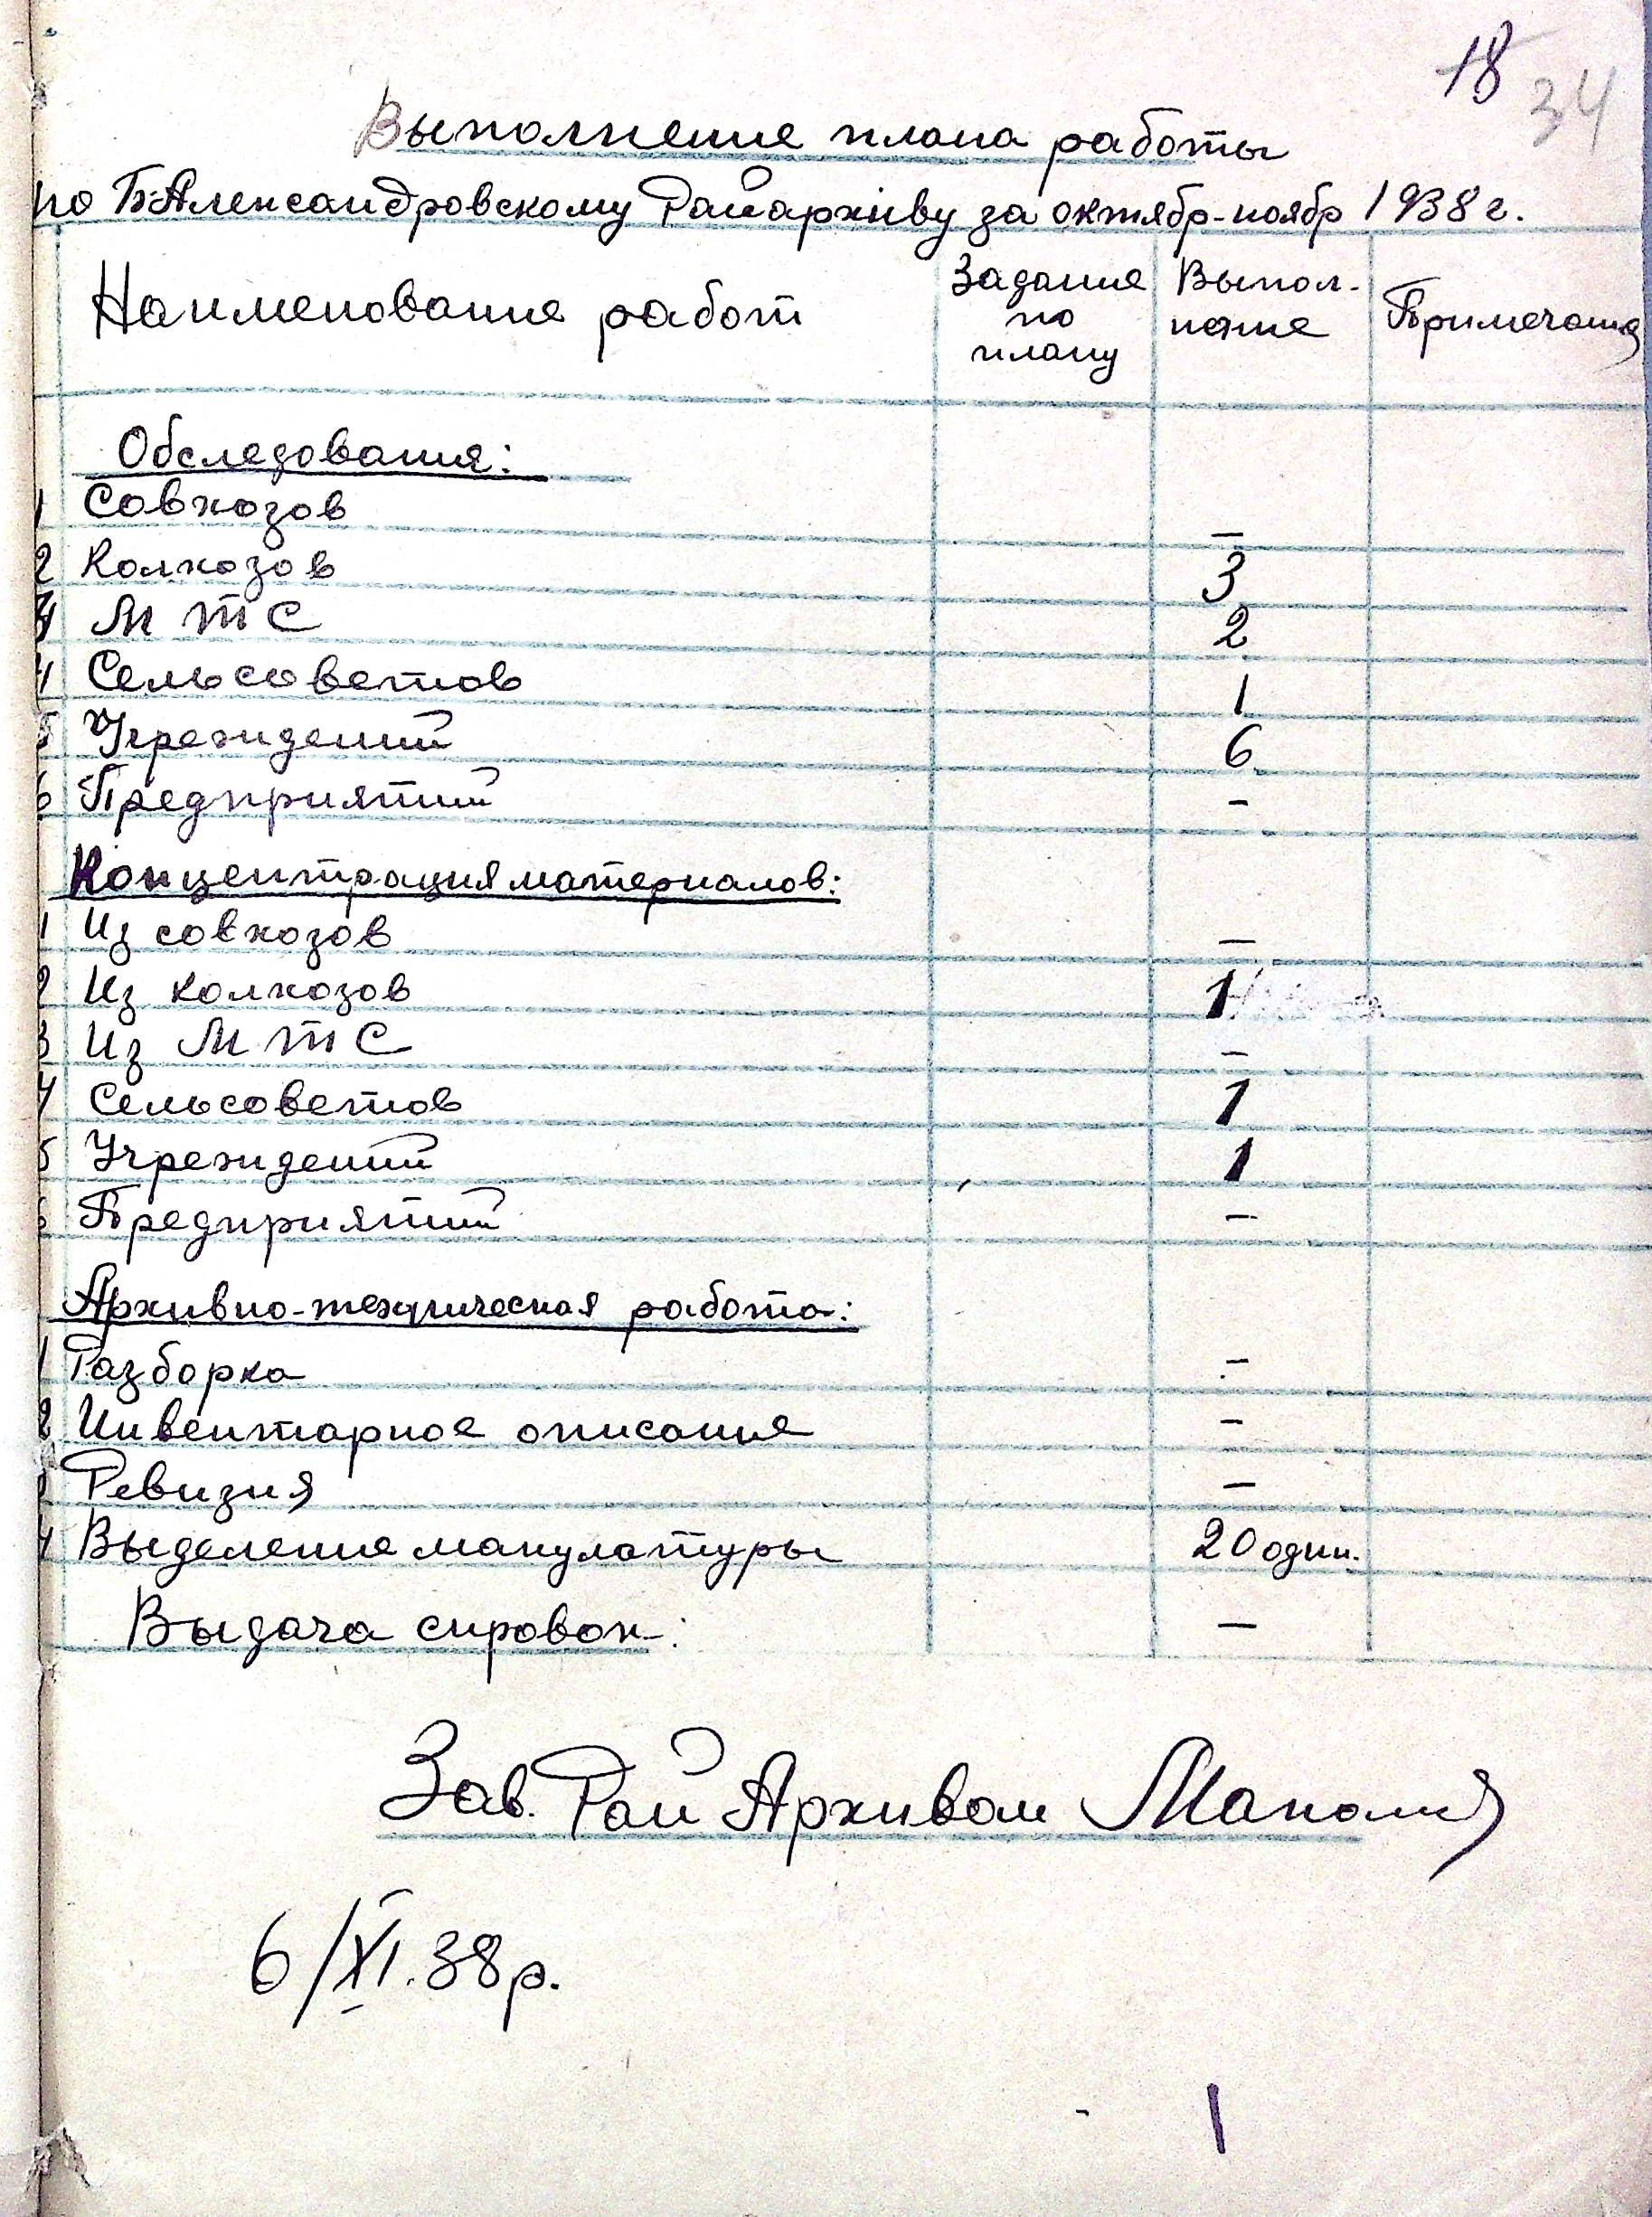 18 34
Выполнение плана работы
по Б-Александровскому Райархиву за октябр-ноябр 1938 г.
Наименование работ Задание по плану Выпол-нение Примечания
Обследования:
1 Совхозов —
2 Колхозов 3
3 М Т С 2
4 Сельсоветов 1
5 Учреждений 6
6 Предприятий -
Концентрация материалов:
1 Из совхозов —
2 Из колхозов 1
3 Из М Т С -
4 Сельсоветов 1
5 Учреждений 1
6 Предприятий —
Архивно-техническая работа:
1 Разборка -
2 Инвентарное описание -
3 Ревизия —
4 Выделение макулатуры 20 один.
Выдача справок: —
Зав. Рай Архивом
6/XI.38р.
1